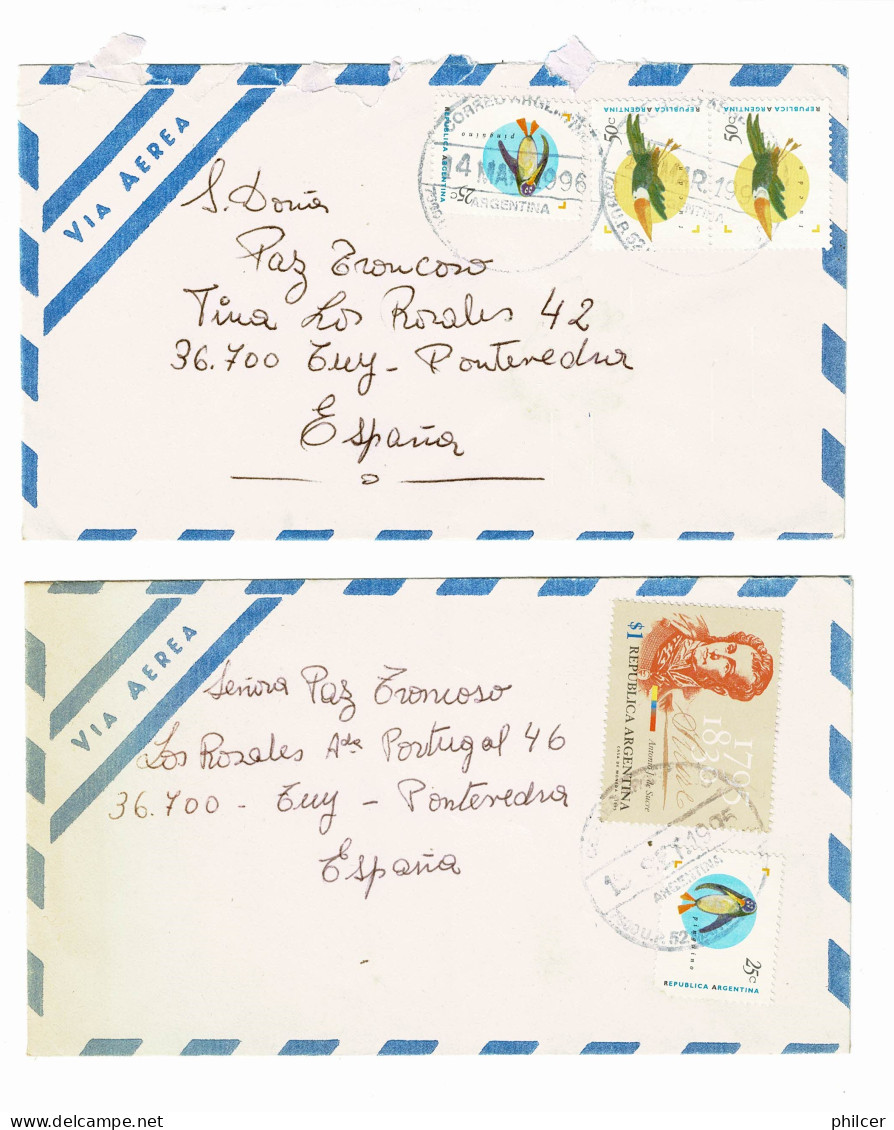 VIA AEREA
CORREO ARGENTINO
14 MAR 1996
ARGENTINA
REPUBLICA ARGENTINA
pinguino
25c
REPUBLICA ARGENTINA
50c
tucan
REPUBLICA ARGENTINA
50c
tucan
MAR. 199
U.P. 52
S. Doña
Paz Troncoso
Tina Los Rosales 42
36.700 Tuy - Pontevedra
España
VIA AEREA
$1 REPUBLICA ARGENTINA
1795
Antonio J. de Sucre
Sucre
Señora Paz Troncoso
Los Rosales Ada Portugal 46
36.700 - Tuy - Pontevedra
España
SET. 1995
ARGENTINA
7500 U.P. 52
pinguino
25c
REPUBLICA ARGENTINA
delcampe.net
philcer